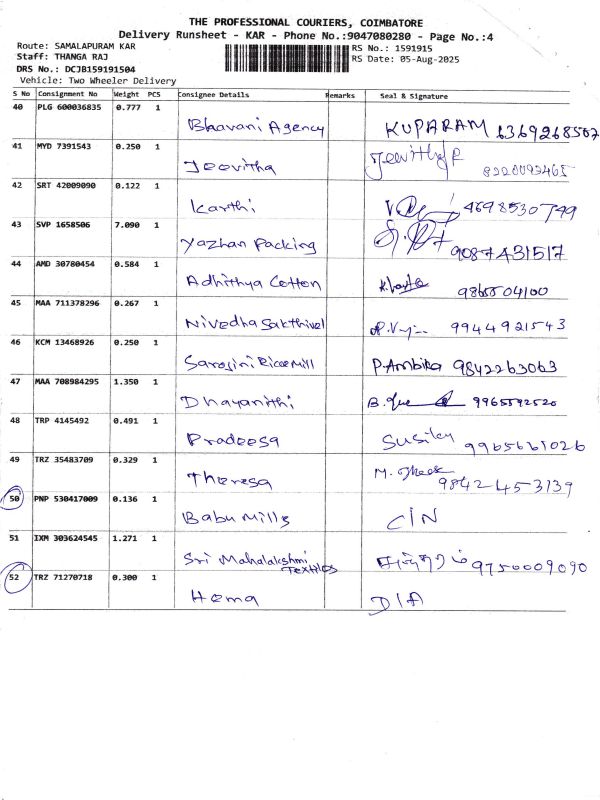 THE PROFESSIONAL COURIERS, COIMBATORE
Delivery Runsheet - KAR - Phone No.:9047080280 - Page No.:4
Route: SAMALAPURAM KAR
RS No.: 1591915
Staff: THANGA RAJ
RS Date: 05-Aug-2025
DRS No.: DCJB159191504
Vehicle: Two Wheeler Delivery
S No Consignment No Weight PCS Consignee Details Remarks Seal & Signature
40 PLG 600036835 0.777 1
Bhavani Agency KUPARAM 6369268507
41 MYD 7391543 0.250 1
Jeevitha 8220092465
42 SRT 42009090 0.122 1
Karthi 4698530799
43 SVP 1658506 7.090 1
Yazhan Packing 9087431517
44 AMD 30780454 0.584 1
Adhithya Cotton 9865504100
45 MAA 711378296 0.267 1
Nivedha Sakthivel 9944921543
46 KCM 13468926 0.250 1
Sarojini Rice Mill P.Ambika 9842263063
47 MAA 708984295 1.350 1
Dhayanithi 9965592520
48 TRP 4145492 0.491 1
Pradeesa 9965661026
49 TRZ 35483709 0.329 1
Theresa 9842453139
50 PNP 530417009 0.136 1
Babu Mills C/N
51 IXM 303624545 1.271 1
Sri Mahalakshmi Textiles 9750009090
52 TRZ 71270718 0.300 1
Hema D/A